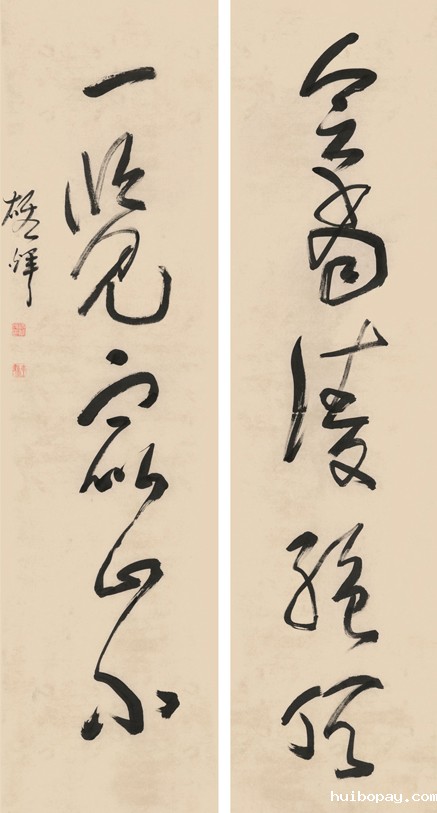 会当凌绝顶
一览众山小
huibopay.com